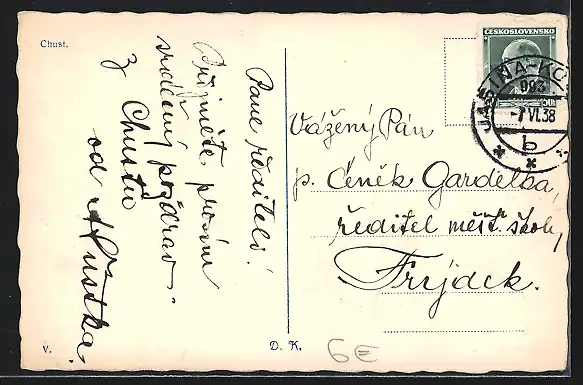 Chust.
Pane řediteli!
Přijměte, prosím
srdečný pozdrav
z Chustu
od
V.
D. K.
6E
ČESKOSLOVENSKO
50
JASIŇA-KÖ
093
-7 VI.38
b
Vážený Pán
p. Ceněk Gardelka,
ředitel měšť. školy,
Frýdek.